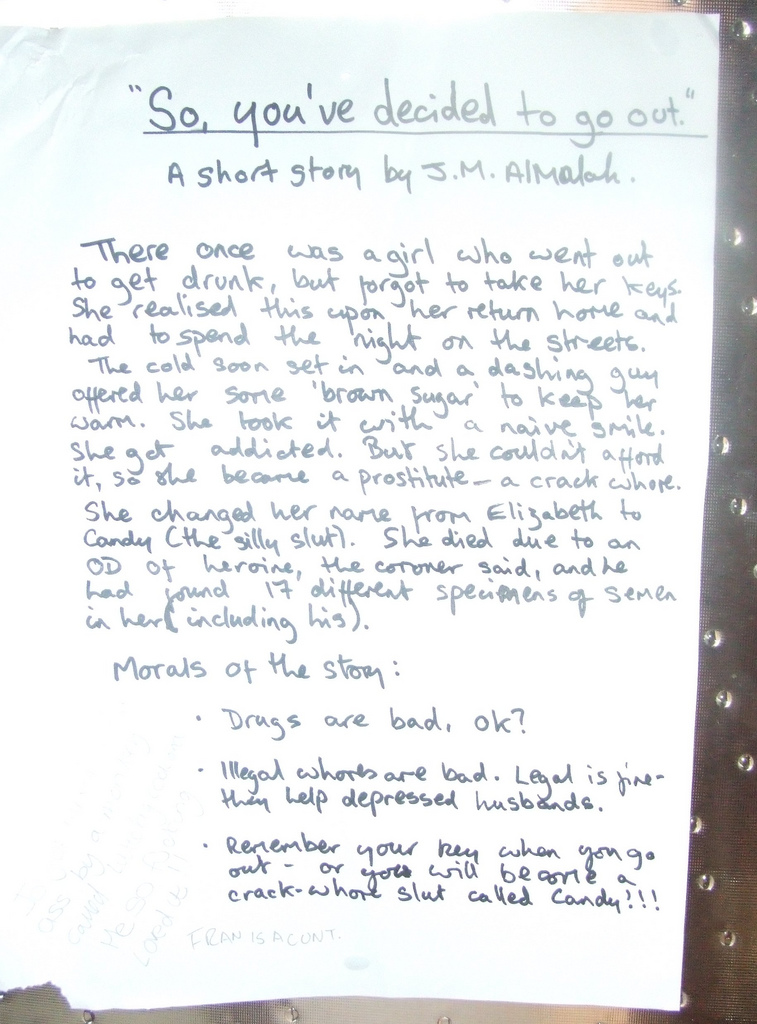 "So, you've decided to go out."
A short story by J.M. AlMalah.
There once was a girl who went out
to get drunk, but forgot to take her keys.
She realised this upon her return home and
had to spend the night on the streets.
The cold soon set in and a dashing guy
offered her some 'brown sugar' to keep her
warm. She took it with a naive smile.
She got addicted. But she couldn't afford
it, so she became a prostitute - a crack whore.
She changed her name from Elizabeth to
Candy (the silly slut). She died due to an
OD of heroine, the coroner said, and he
had found 17 different specimens of semen
in her (including his).
Morals of the story:
· Drugs are bad, ok?
· Illegal whores are bad. Legal is fine-
they help depressed husbands.
· Remember your key when you go
out - or you will become a
crack-whore slut called Candy!!!
ass by a
called
He so
Loved it
FRAN IS A CUNT.